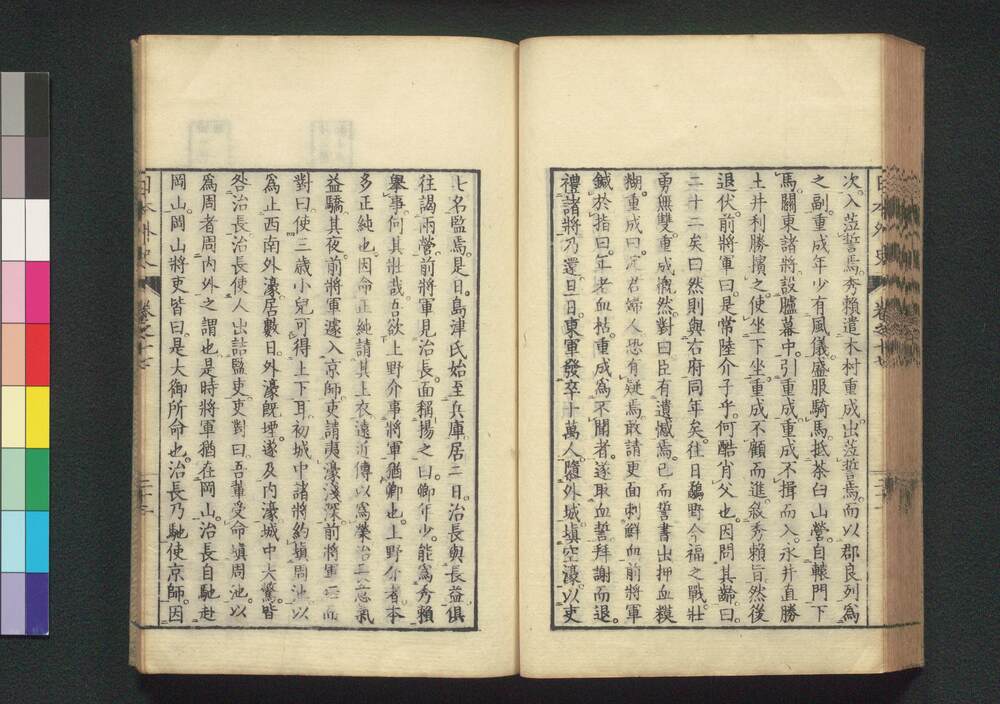 次入涖誓焉秀賴遣木村重成出涖誓焉而以郡良列爲
之副。重成年少有風儀。盛服騎馬。抵茶臼山營。自轅門下
馬。關東諸將設臚幕中。引重成。重成不揖而入。永井直勝
土井利勝擯之。使坐下坐。重成不顧而進。敘秀賴旨。然後
退伏。前將軍曰。是常陸介子乎。何酷肖父也。因問其齡。曰。
二十二矣。曰。然則與右府同年矣。往日鴫野今福之戰。壯
勇無雙。重成慨然對曰。臣有遺憾焉。已而誓書出。押血糢
糊。重成曰。寡君婦人恐有疑焉。敢請更面刺鮮血。前將軍
鍼於指曰。年老血枯。重成爲不聞者。遂取血誓。拜謝而退。
禮諸將乃還。旦日。東軍發卒十萬人。隳外城。塡空濠。以吏
七名監焉。是日島津氏始至兵庫。居二日。治長與長益俱
往謁兩營。前將軍見治長。面稱揚之曰。卿年少。能爲秀賴
舉事。何其壯哉。吾欲上野介事將軍猶卿也。上野介者本
多正純也。因命正純請其上衣。遠近傳以爲榮。治長意氣
益驕。其夜。前將軍遽入京師。吏請夷濠淺深。前將軍
對曰。使三歲小兒可得上下耳。初城中諸將約塡周池。以
爲止西南外濠。居數日。外濠既堙。遂及内濠。城中大驚。皆
咎治長。治長使人出詰監吏。吏對曰。吾輩受命塡周池。以
爲周者周内外之謂也。是時將軍猶在岡山。治長自馳赴
岡山。岡山將吏皆曰。是大御所命也。治長乃馳使京師。因
日本外史 卷之十七